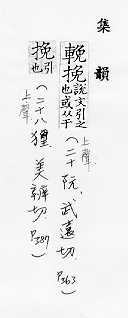 集韻
輓挽 說文引之也或从手
上聲(二十阮、武遠切、P363
挽 引也
上聲(二十八獮 美辨切、P389